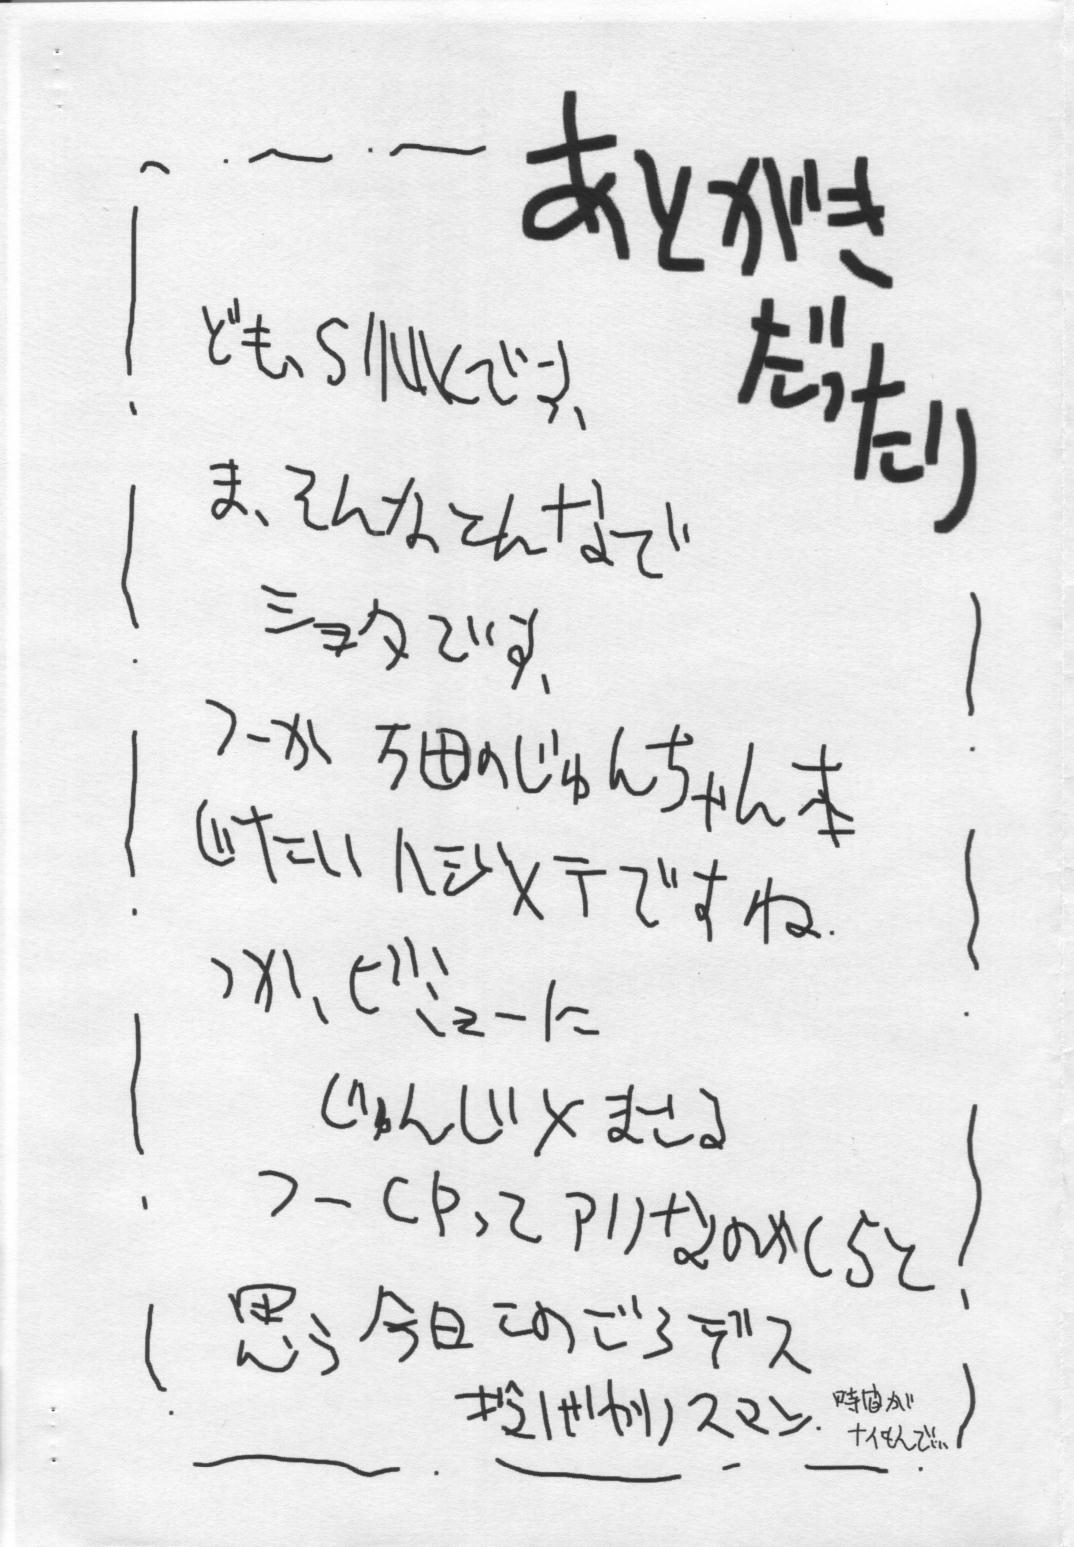 あとがき
だったり
ども、SINKです、
ま、そんなこんなで
ショタです、
つーか 万田のじゅんちゃん本
じたい ハジメテですね.
つか、ビジュー に
じゅんじ×まさる
つーCPってアリなのかしらと
思う今日このごろデス
スマン.
時間が
ナイもんで…